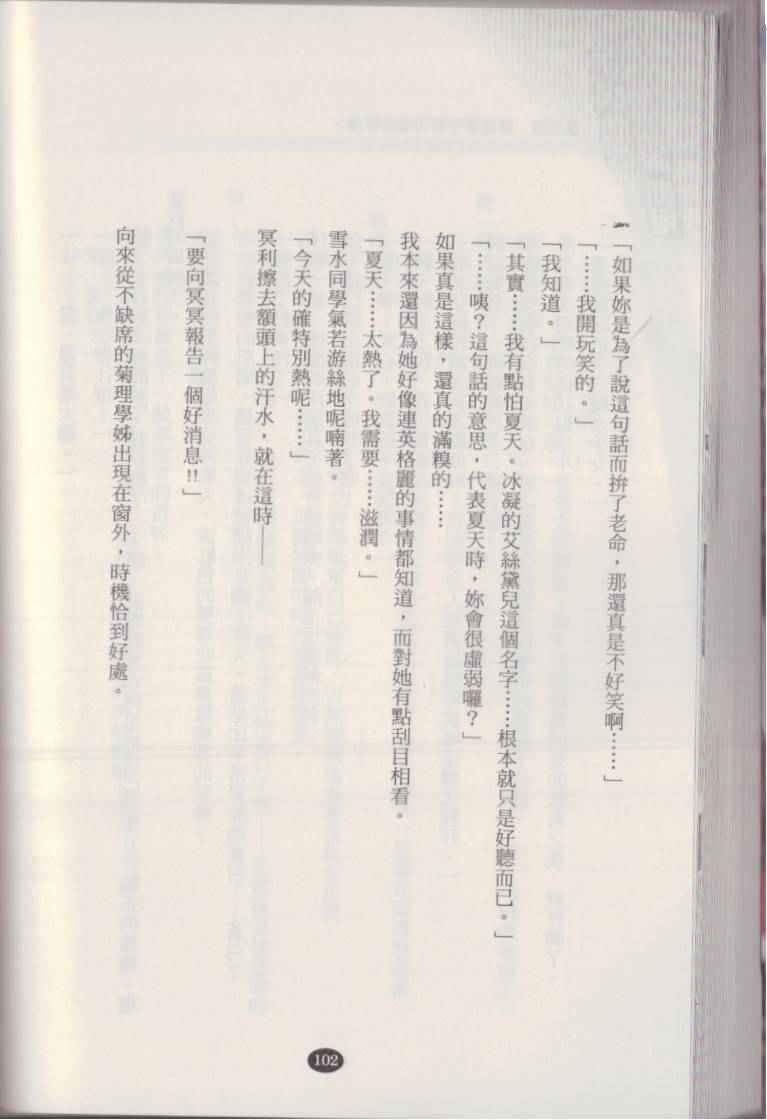 「如果妳是為了說這句話而拚了老命，那還真是不好笑啊……」
「……我開玩笑的。」
「我知道。」
「其實……我有點怕夏天。冰凝的艾絲黛兒這個名字……根本就只是好聽而已。」
「……咦？這句話的意思，代表夏天時，妳會很虛弱囉？」
如果真是這樣，還真的滿糗的……
我本來還因為她好像連英格麗的事情都知道，而對她有點刮目相看。
「夏天……太熱了。我需要……滋潤。」
雪水同學氣若游絲地呢喃著。
「今天的確特別熱呢……」
冥利擦去額頭上的汗水，就在這時——
「要向冥冥報告一個好消息!!」
向來從不缺席的菊理學姊出現在窗外，時機恰到好處。
102